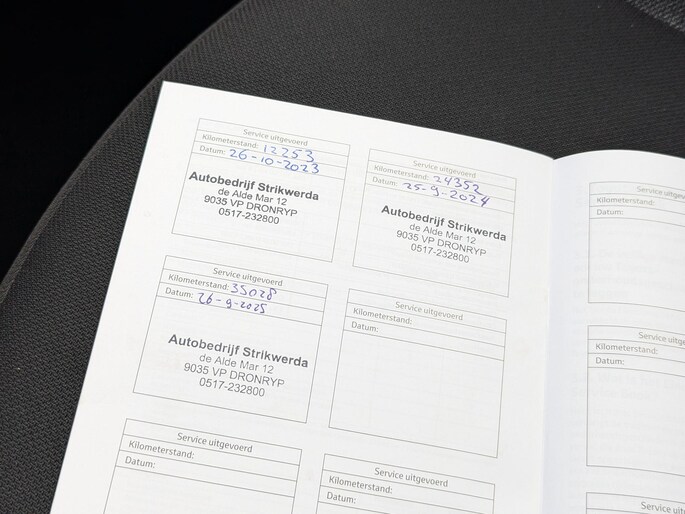 Service uitgevoerd
Kilometerstand: 12253
Datum: 26-10-2023
Autobedrijf Strikwerda
de Alde Mar 12
9035 VP DRONRYP
0517-232800
Service uitgevoerd
Kilometerstand: 24352
Datum: 25-9-2024
Autobedrijf Strikwerda
de Alde Mar 12
9035 VP DRONRYP
0517-232800
Service uitgevoerd
Kilometerstand: 35028
Datum: 26-9-2025
Autobedrijf Strikwerda
de Alde Mar 12
9035 VP DRONRYP
0517-232800
Service uitgevoerd
Kilometerstand:
Datum:
Service uitgevoerd
Kilometerstand:
Datum:
Service uitgevoerd
Kilometerstand:
Datum:
Service
Kilometerstand:
Datum:
Service uitgev
Kilometerstand:
Datum:
Service